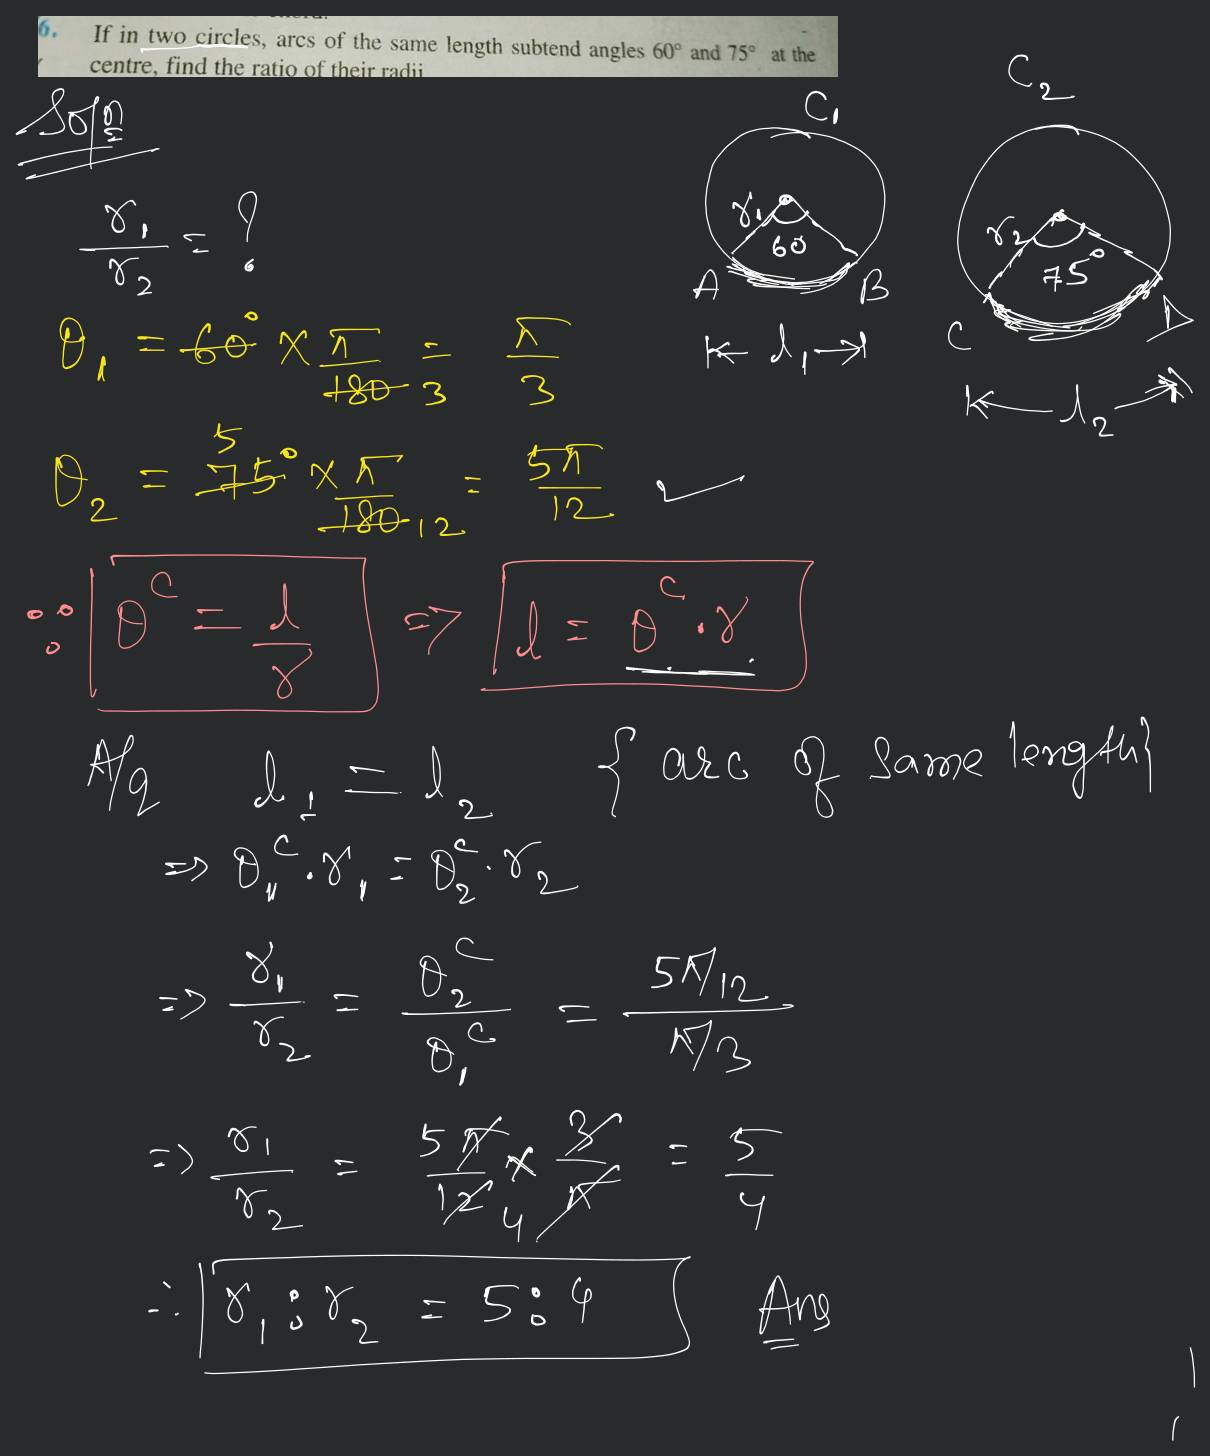 6. If in two circles, arcs of the same length subtend angles 60° and 75° at the
centre, find the ratio of their radii
Soln
C₁
C₂
r₁/r₂ = ?
r₁
60
A
B
l₁
r₂
75°
C
D
l₂
θ₁ = 60° × π/180 3 = π/3
θ₂ = 5 75° × π/180 12 = 5π/12
∵ θᶜ = l/r ⇒ l = θᶜ . r
A/q l₁ = l₂ { arc of same length}
⇒ θ₁ᶜ . r₁ = θ₂ᶜ . r₂
⇒ r₁/r₂ = θ₂ᶜ/θ₁ᶜ = (5π/12)/(π/3)
⇒ r₁/r₂ = 5π/12 4 × 3/π = 5/4
∴ r₁ : r₂ = 5 : 4 Ans